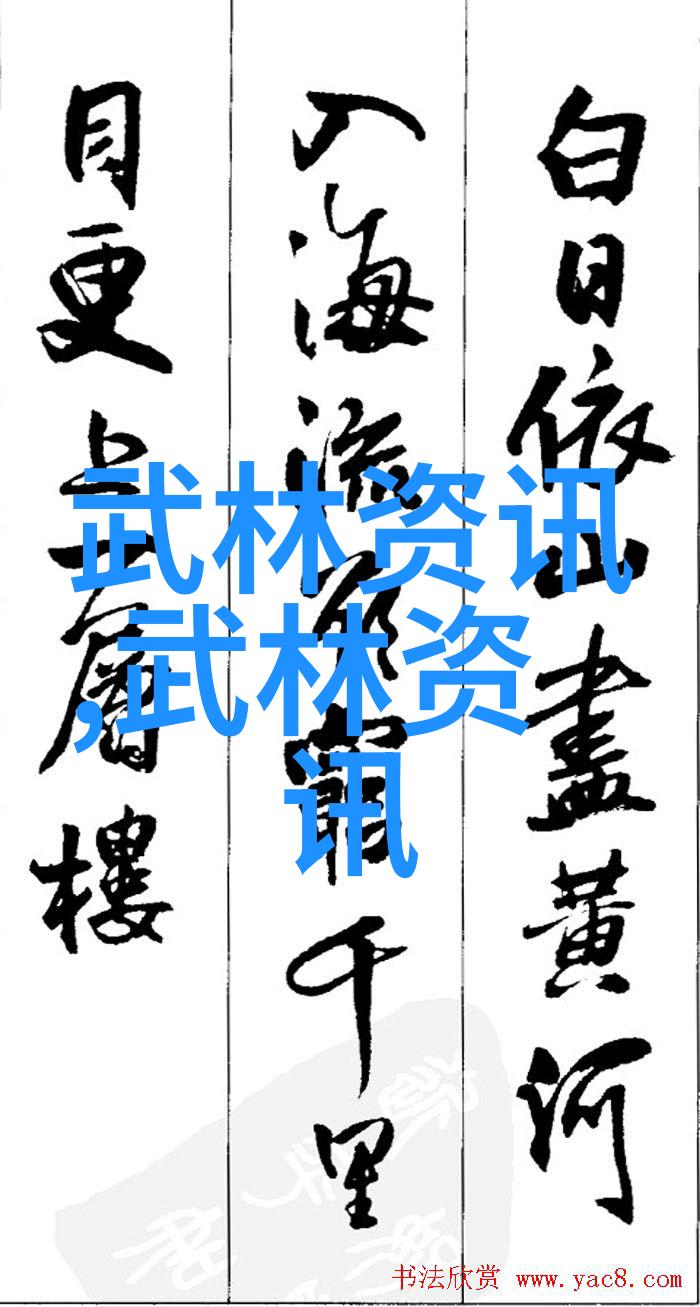 白日依山盡黄河
入海流欲窮千里
目更上一層樓
武林资讯
,武林资
讯
书法欣赏 www.yac8.com